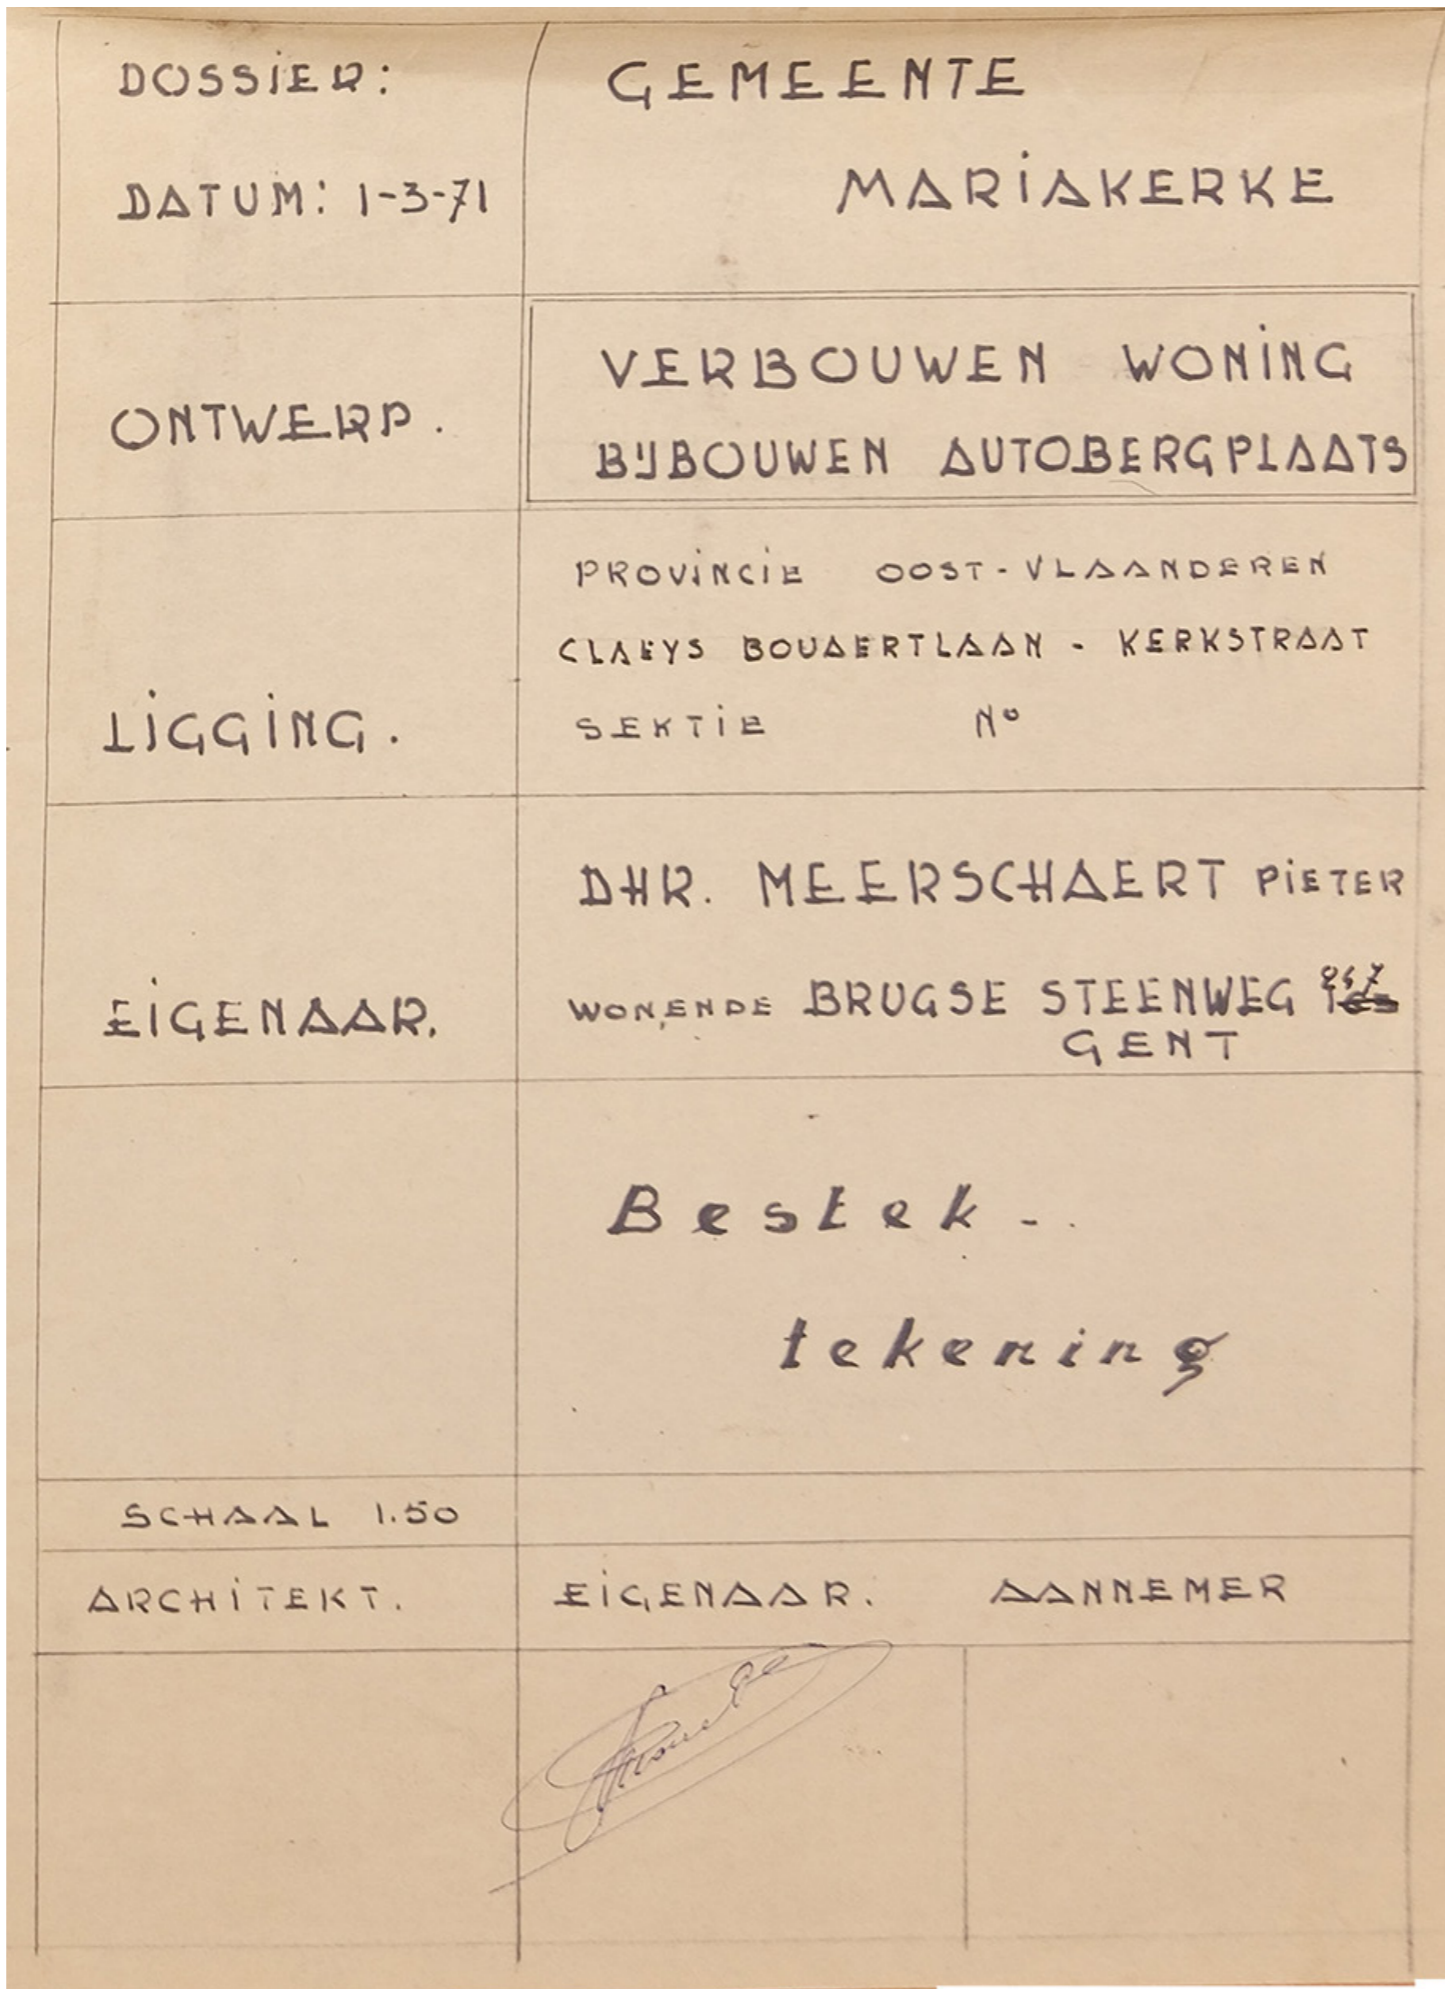 DOSSIER:
GEMEENTE
MARIAKERKE
DATUM: 1-3-71
ONTWERP.
VERBOUWEN WONING
BIJBOUWEN AUTOBERGPLAATS
LIGGING.
PROVINCIE OOST-VLAANDEREN
CLAEYS BOUAERTLAAN - KERKSTRAAT
SEKTIE N°
EIGENAAR.
DHR. MEERSCHAERT PIETER
WONENDE BRUGSE STEENWEG
GENT
Bestek-
tekening
SCHAAL 1.50
ARCHITEKT. EIGENAAR. AANNEMER